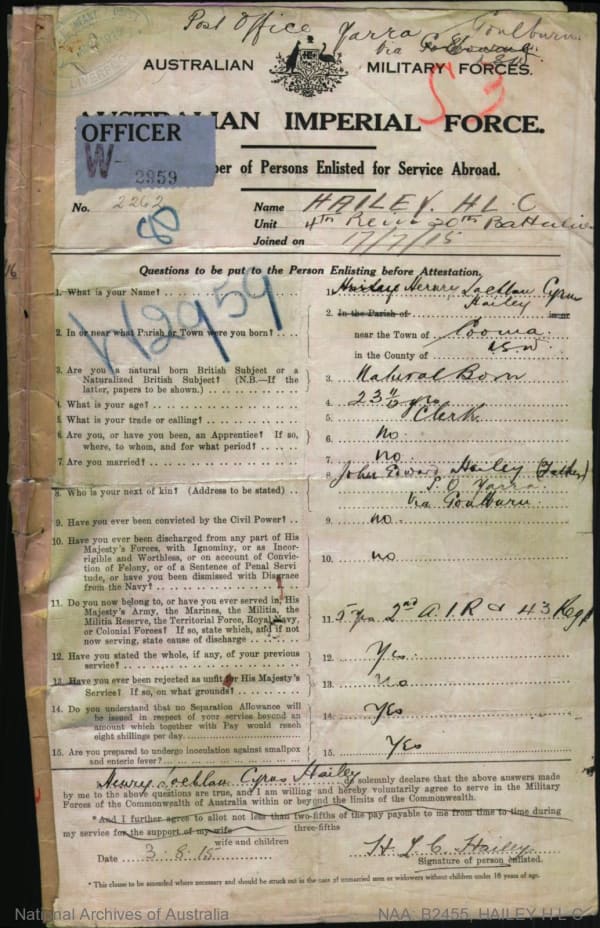 Post Office Yarra Goulburn
via
AUSTRALIAN MILITARY FORCES.
53
AUSTRALIAN IMPERIAL FORCE.
OFFICER
W-
2959
ber of Persons Enlisted for Service Abroad.
No. 2262
80
Name HAILEY. H L C
Unit 4th Rein 20th Battalion
Joined on 17/7/15
Questions to be put to the Person Enlisting before Attestation.
W2959
1. What is your Name? 1. Henry Cyrus Hailey
2. In or near what Parish or Town were you born? 2. In the Parish of in or
near the Town of Cooma
in the County of NSW
3. Are you a natural born British Subject or a
Naturalized British Subject? (N.B.—If the
latter, papers to be shown.) 3. Natural Born
4. What is your age? 4. 23
5. What is your trade or calling? 5. Clerk
6. Are you, or have you been, an Apprentice? If so,
where, to whom, and for what period? 6. no.
7. Are you married? 7. no.
8. Who is your next of kin? (Address to be stated) 8. John Edward Hailey (Father)
P.O. Yarra
Via Goulburn
9. Have you ever been convicted by the Civil Power? 9. no.
10. Have you ever been discharged from any part of His
Majesty's Forces, with Ignominy, or as Incor-
rigible and Worthless, or on account of Convic-
tion of Felony, or of a Sentence of Penal Servi
tude, or have you been Dismissed with Disgrace
from the Navy? 10. no
11. Do you now belong to, or have you ever served in, His
Majesty's Army, the Marines, the Militia, the
Militia Reserve, the Territorial Force, Royal Navy,
or Colonial Forces? If so, state which, and if not
now serving, state cause of discharge 11. 5 yrs 2nd A.I.R & 43 Regt
12. Have you stated the whole, if any, of your previous
service? 12. Yes.
13. Have you ever been rejected as unfit for His Majesty's
Service? If so, on what grounds? 13. no
14. Do you understand that no Separation Allowance will
be issued in respect of your service beyond an
amount which together with Pay would reach
eight shillings per day. 14. Yes
15. Are you prepared to undergo inoculation against smallpox
and enteric fever? 15. Yes
I, Henry Cyrus Hailey do solemnly declare that the above answers made
by me to the above questions are true, and I am willing and hereby voluntarily agree to serve in the Military
Forces of the Commonwealth of Australia within or beyond the limits of the Commonwealth.
*And I further agree to allot not less than two-fifths of the pay payable to me from time to time during
three-fifths
my service for the support of my wife
wife and children
Date 3.8.15 H. L. C. Hailey
Signature of person enlisted.
* This clause to be amended where necessary and should be struck out in the case of unmarried men or widowers without children under 16 years of age.
National Archives of Australia NAA: B2455, HAILEY H L C